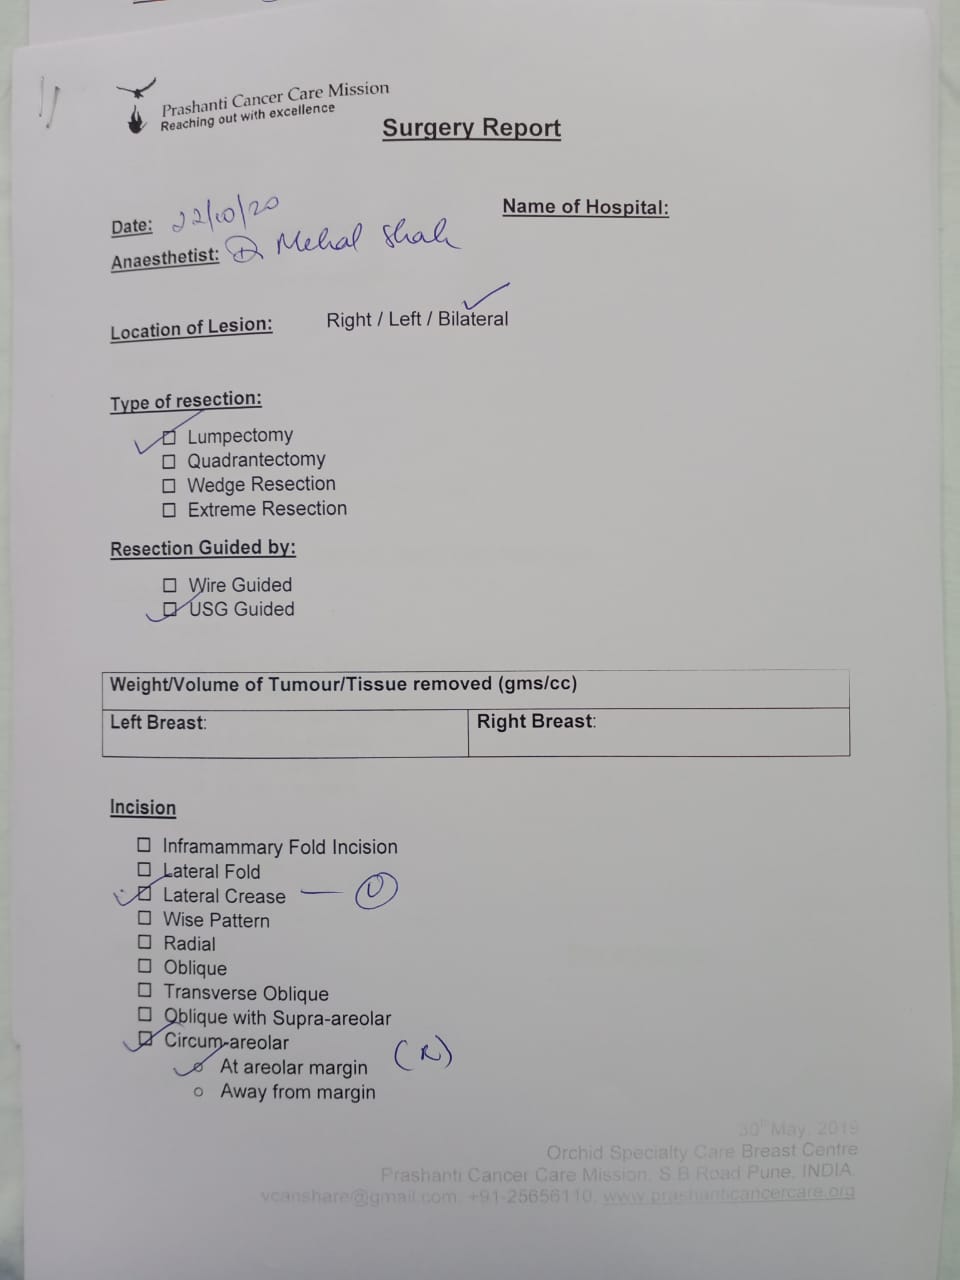 Prashanti Cancer Care Mission
Reaching out with excellence
Surgery Report
Date: 22/10/20
Name of Hospital:
Anaesthetist: Dr Mehal Shah
Location of Lesion: Right / Left / Bilateral
Type of resection:
Lumpectomy
Quadrantectomy
Wedge Resection
Extreme Resection
Resection Guided by:
Wire Guided
USG Guided
Weight/Volume of Tumour/Tissue removed (gms/cc)
Left Breast: Right Breast:
Incision
Inframammary Fold Incision
Lateral Fold
Lateral Crease —
Wise Pattern
Radial
Oblique
Transverse Oblique
Oblique with Supra-areolar
Circum-areolar
At areolar margin (R)
Away from margin
30th May, 2019
Orchid Specialty Care Breast Centre
Prashanti Cancer Care Mission, S.B Road Pune, INDIA.
vcanshare@gmail.com, +91-25656110, www.prashanticancercare.org